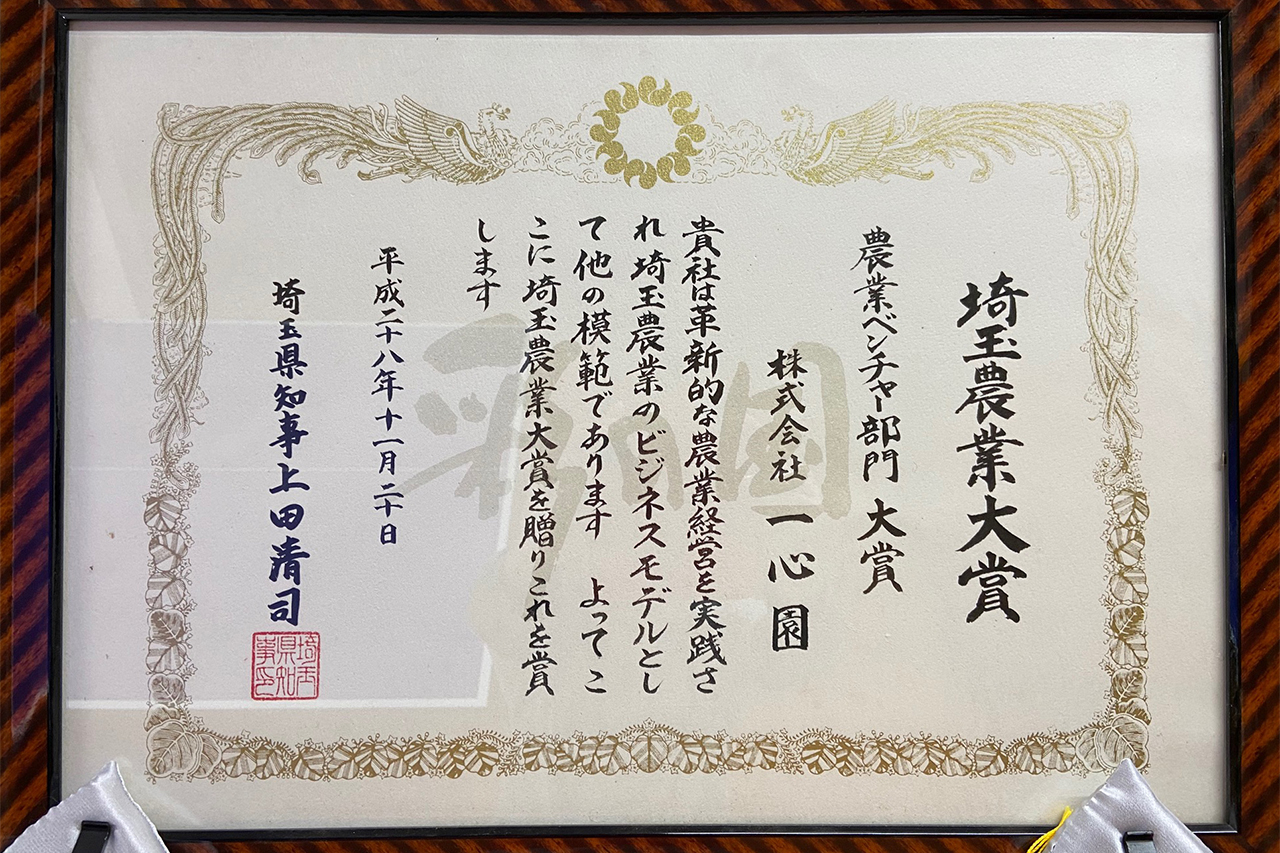 埼玉農業大賞
農業ベンチャー部門 大賞
株式会社 一心園
貴社は革新的な農業経営を実践さ
れ埼玉農業のビジネスモデルとし
て他の模範であります よってこ
こに埼玉農業大賞を贈りこれを賞
します
平成二十八年十一月二十日
埼玉県知事上田清司
埼玉県知事印
彩の国